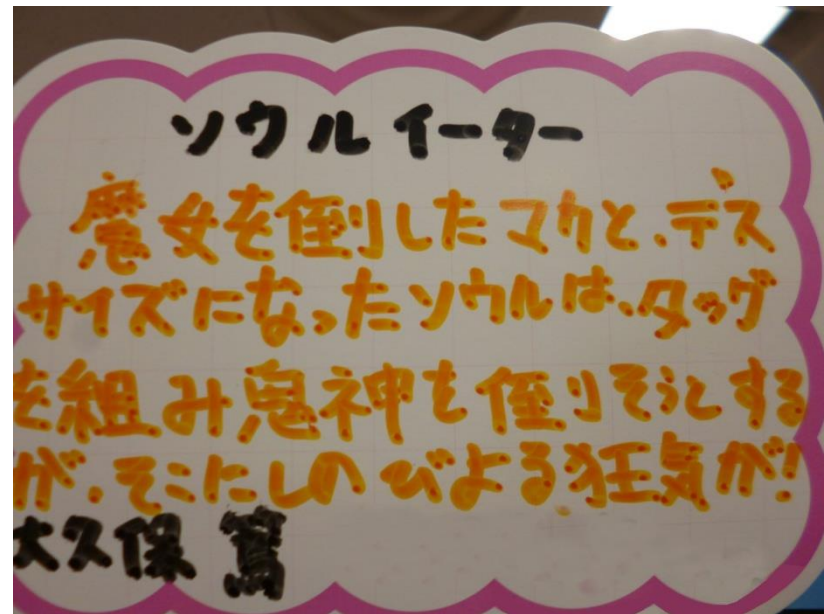 ソウルイーター
魔女を倒したマカと、デス
サイズになったソウルは、タッグ
を組み鬼神を倒りそうとする
が、そこにしのびよる狂気が!
大久保 篤